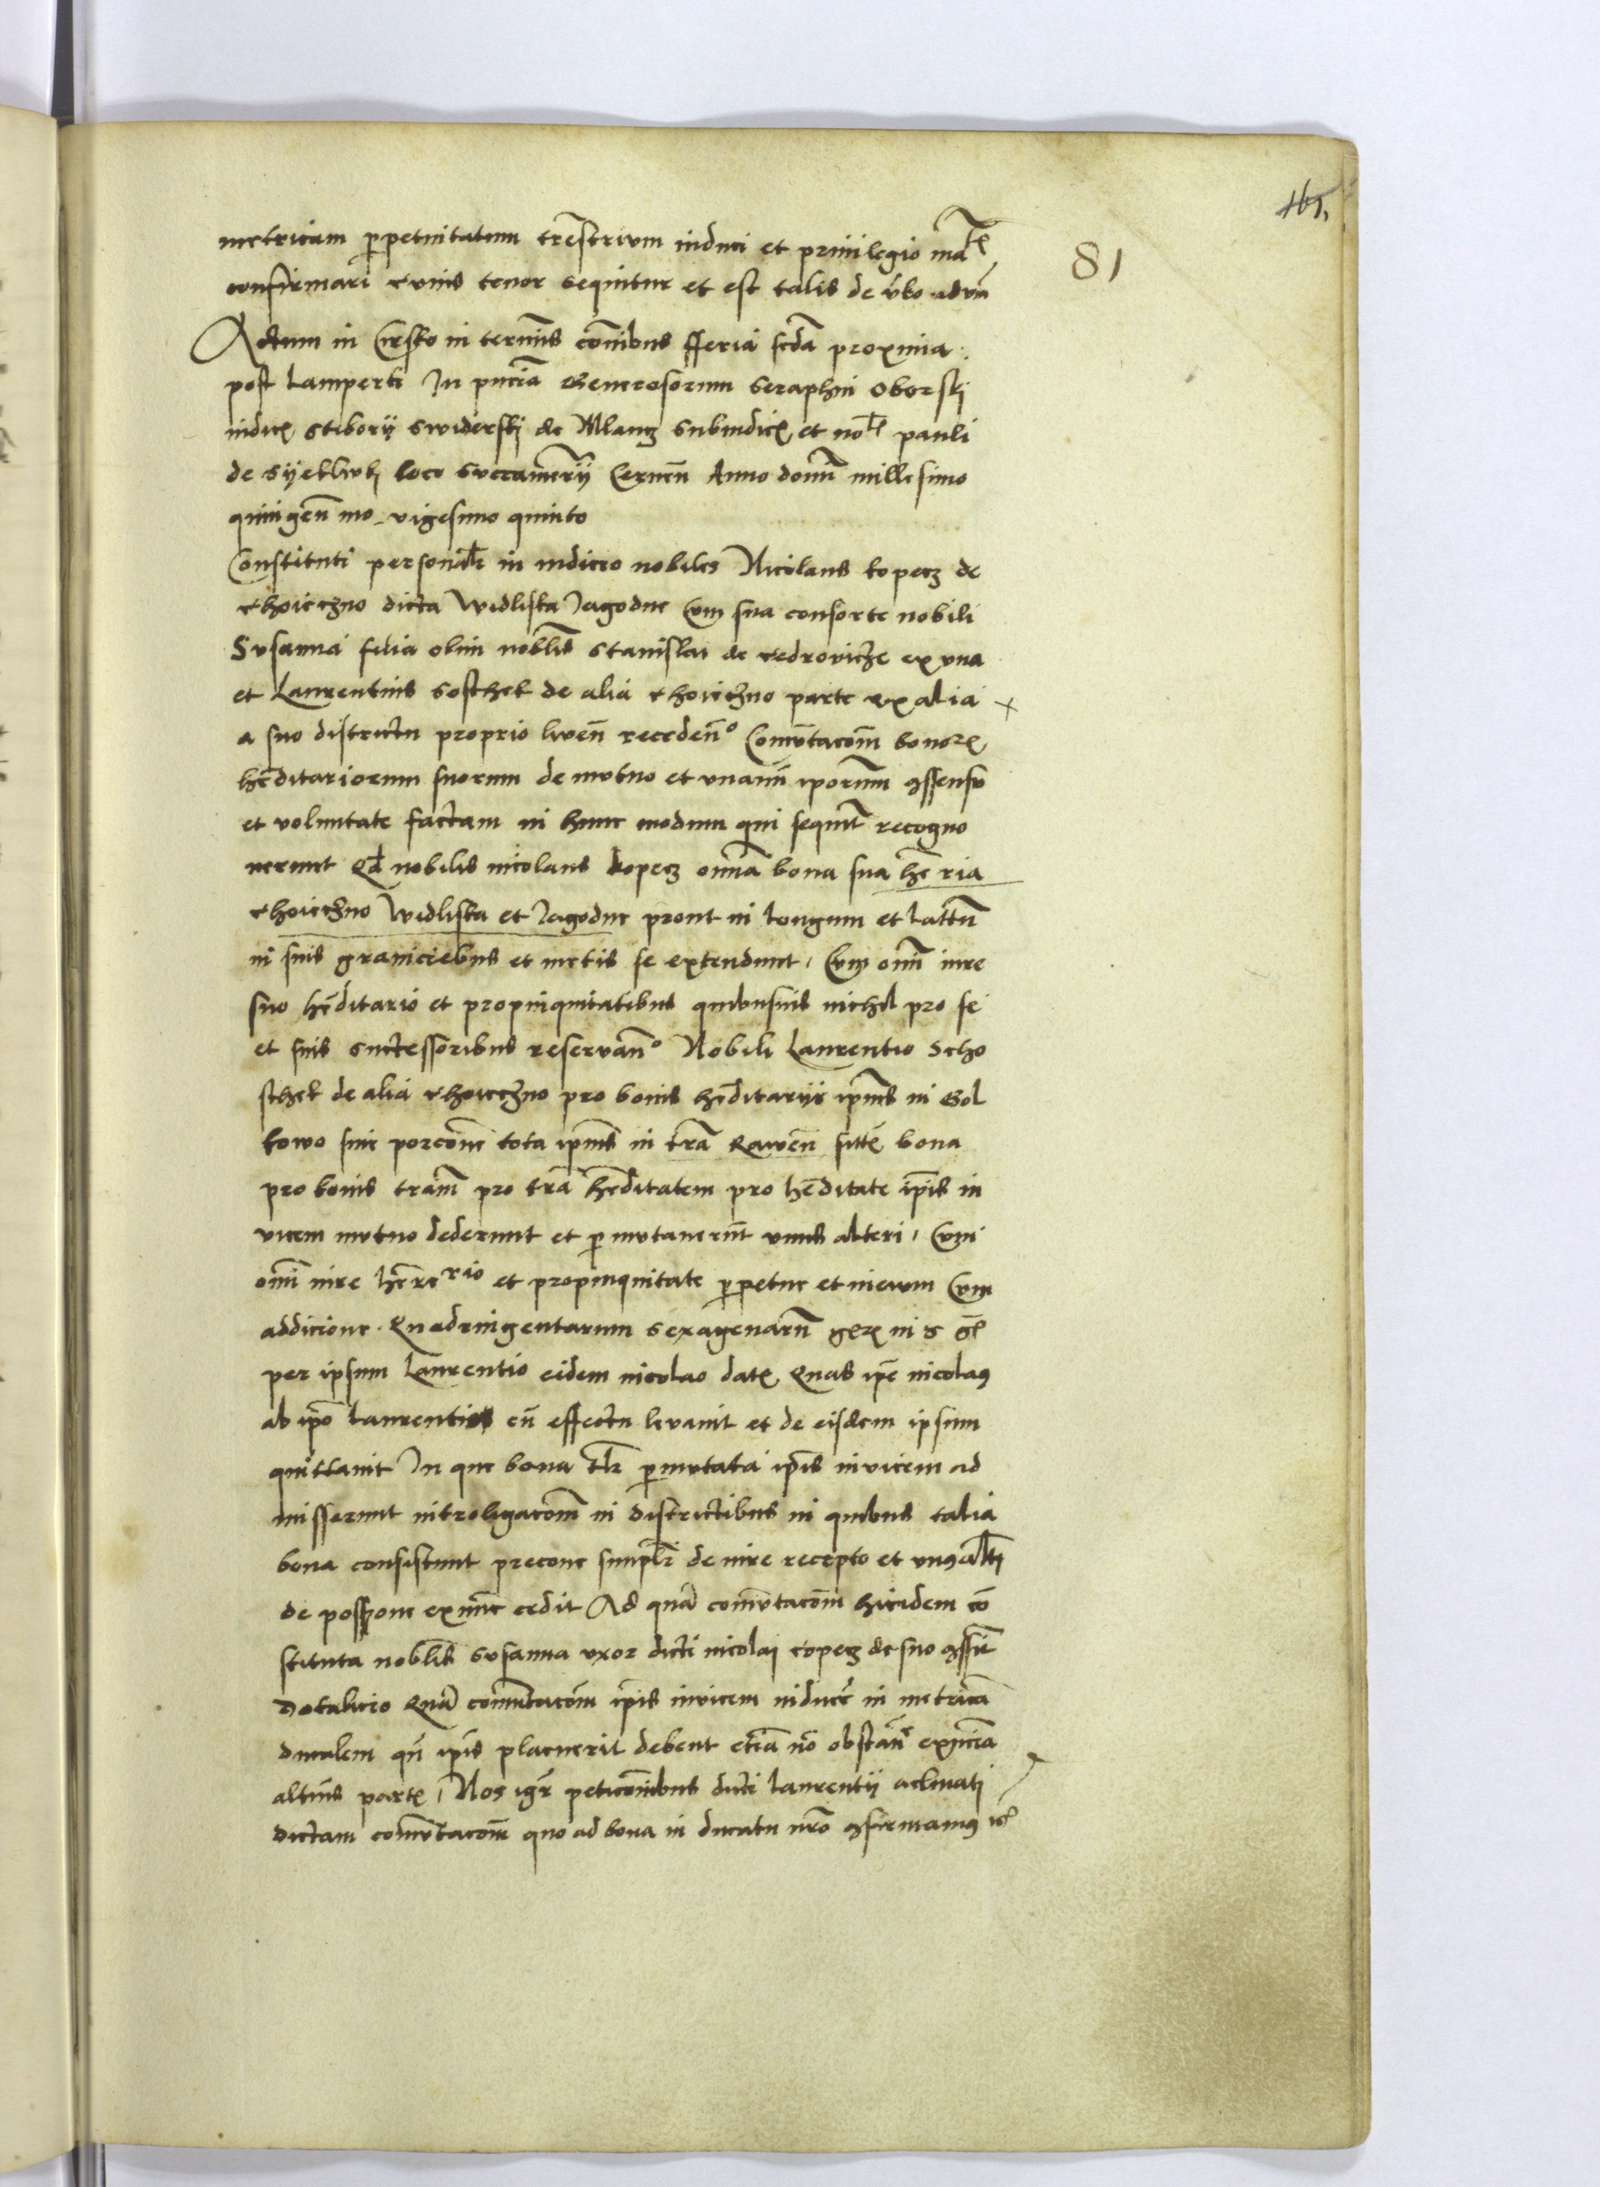 165
81
metricam p̄petuitatum tr̄estrium induci et priuilegio
confirmari cuius tenor sequitur et est talis de v̄bo ad vm̄
Actum in Cirsko in terminis com̄ibus fferia scda proxima
post Lamperti In pn̄cia Generosorum Seraphin Oborskij
iudicis Stiborij Swiderskij de Mlang subiudicis et nob pauli
de loco succamerij Cernen̄ Anno domī millesimo
quingen̄mo vigesimo quinto
Constituti personalr in iudicio nobiles Nicolaus kopecz de
choieczno dicta Widliska Jagodne Cum sua consorte nobili
Susanna filia olim nobilis Stanislai de ex vna
et Laurentius Soschek de alia choieczno parte ex alia
a suo districtu proprio receden° Com̄utacom̄ bonor
hēditariorum suorum de mutuo et vnanī ip̄orum assensu
et voluntate factam in hunc modum qui sequit̄ recogno
uerunt Qd nobilis nicolaus kopecz omīa bona sua hēria
choieczno Widliska et Jagodne prout in longum et lattum
in suis graniciebus et metis se extendunt, Cum omī iure
suo hēditario et propinquitatibus quibusuis nichil pro se
et suis successoribus reseruan° Nobili Laurentio Scho
schek de alia choieczno pro bonis hēditariis ip̄ius in Gol
kowo siue porcōne tota ip̄ius in trā Rawen̄ bona
pro bonis trām pro trā hēditatem pro hēditate ip̄is in
vicem mutuo dederunt et p̄mutauerunt vnus alteri, Cum
omī iure et propinquitate p̄petue et in euum Cum
addicione Quadringentarum sexagenarū in
per ipsum Laurentio eidem nicolao dat Quas ip̄e nicolaus
ab ip̄o Laurentio cū effectu leuauit et de eisdem ipsum
quittauit In que bona p̄mutata ip̄is inuicem ad
misserunt intro ligacom̄ in districtibus in quibus talia
bona consistunt precone simplr de iure recepto et vnus alti
de possone ex nunc cedit Ad quā com̄utacom̄ hicidem cō
stituta nobilis Susanna vxor dicti nicolai copecz de suo
Dotalicio Quā com̄utacom̄ ip̄is inuicem inducē in metricā
ducalem qn̄ ip̄is placuerit debent eciā nō obstan̄
altius partis, Nos igr̄ peticōnibus dicti Laurentij aclinati
dictam com̄utacom̄ quo ad bona in ducatu nrō confirmamus